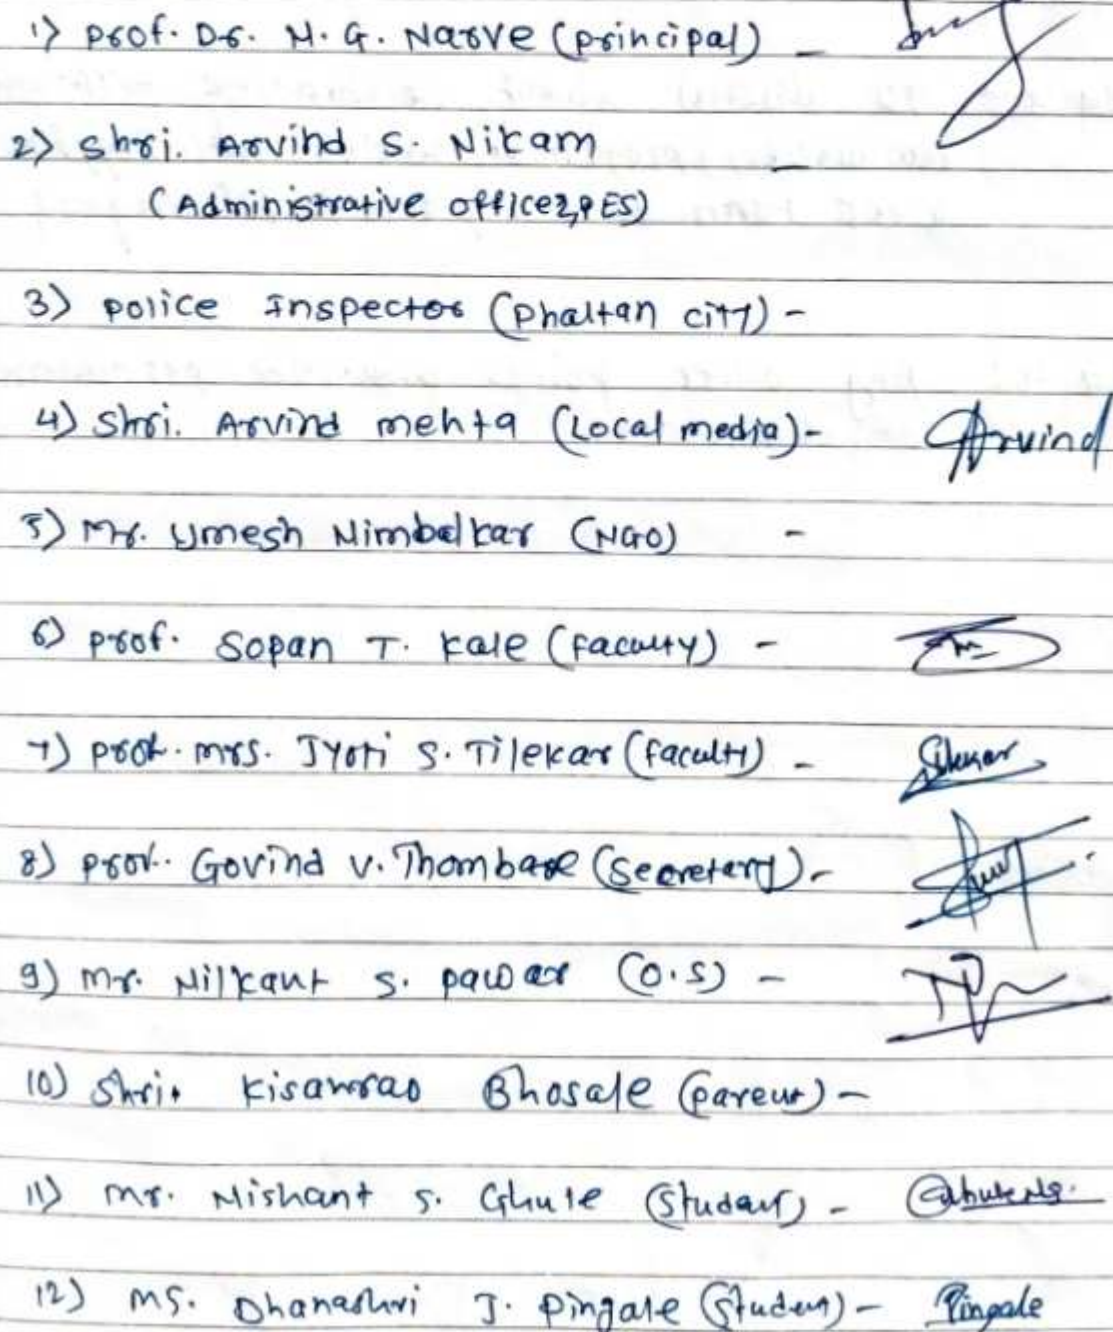 1) Prof. Dr. N. G. Narve (Principal) -
2) Shri. Arvind S. Nikam -
(Administrative officer, PES)
3) Police Inspector (Phaltan city) -
4) Shri. Arvind mehta (Local media) - Arvind
5) Mr. Umesh Nimbalkar (NGO) -
6) Prof. Sopan T. Kale (Faculty) -
7) Prof. Mrs. Jyoti S. Tilekar (Faculty) -
8) Prof. Govind V. Thombare (Secretary) -
9) Mr. Nilkant S. Pawar (O.S) -
10) Shri. Kisanrao Bhosale (Parent) -
11) Mr. Nishant S. Ghule (Student) - GhuleNS.
12) Ms. Dhanashri J. Pingale (Student) - Pingale